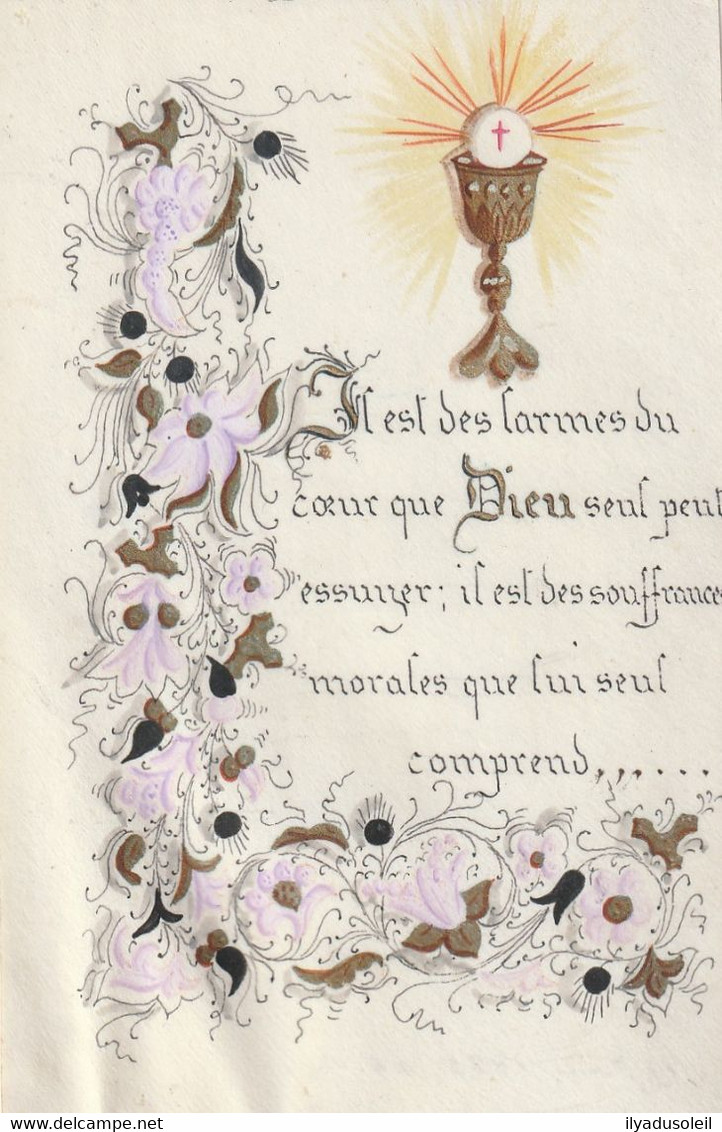 Il est des larmes du
cœur que Dieu seul peut
essuyer; il est des souffrances
morales que lui seul
comprend,,,.....
delcampe.net
ilyadusoleil